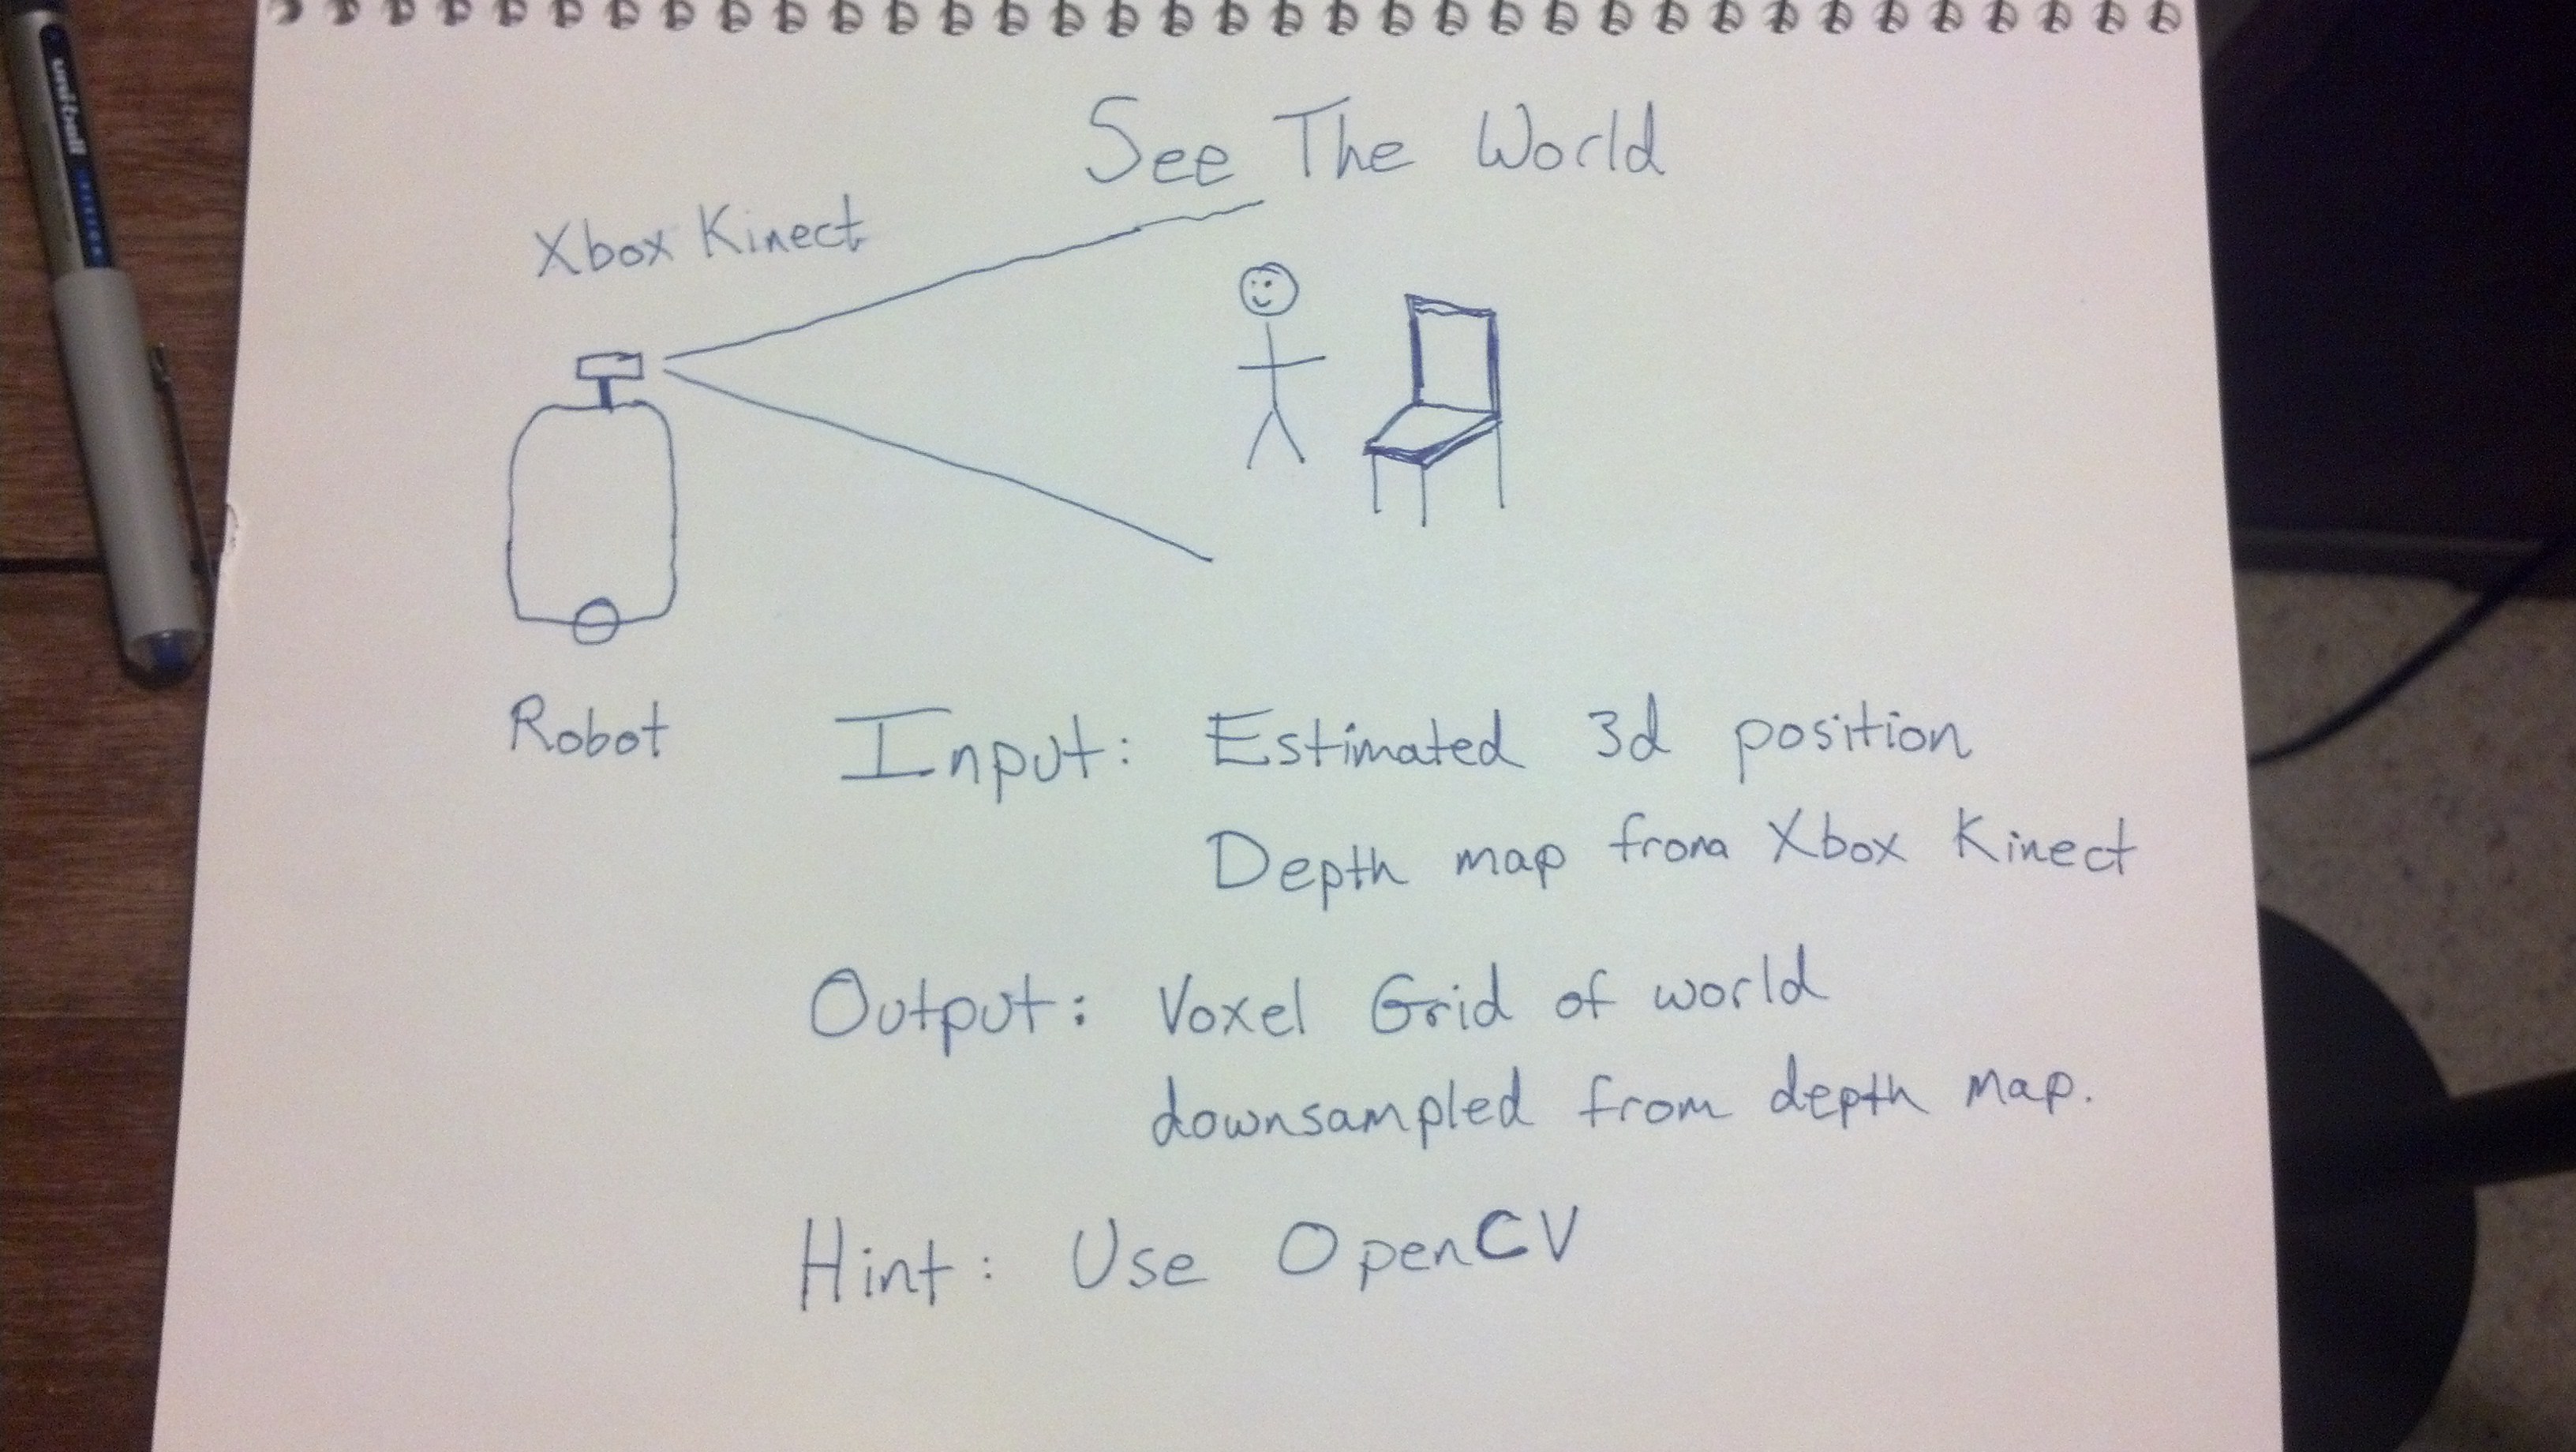 uni-ball
See The World
Xbox Kinect
Robot
Input: Estimated 3d position
Depth map from Xbox Kinect
Output: Voxel Grid of world
downsampled from depth map.
Hint: Use OpenCV